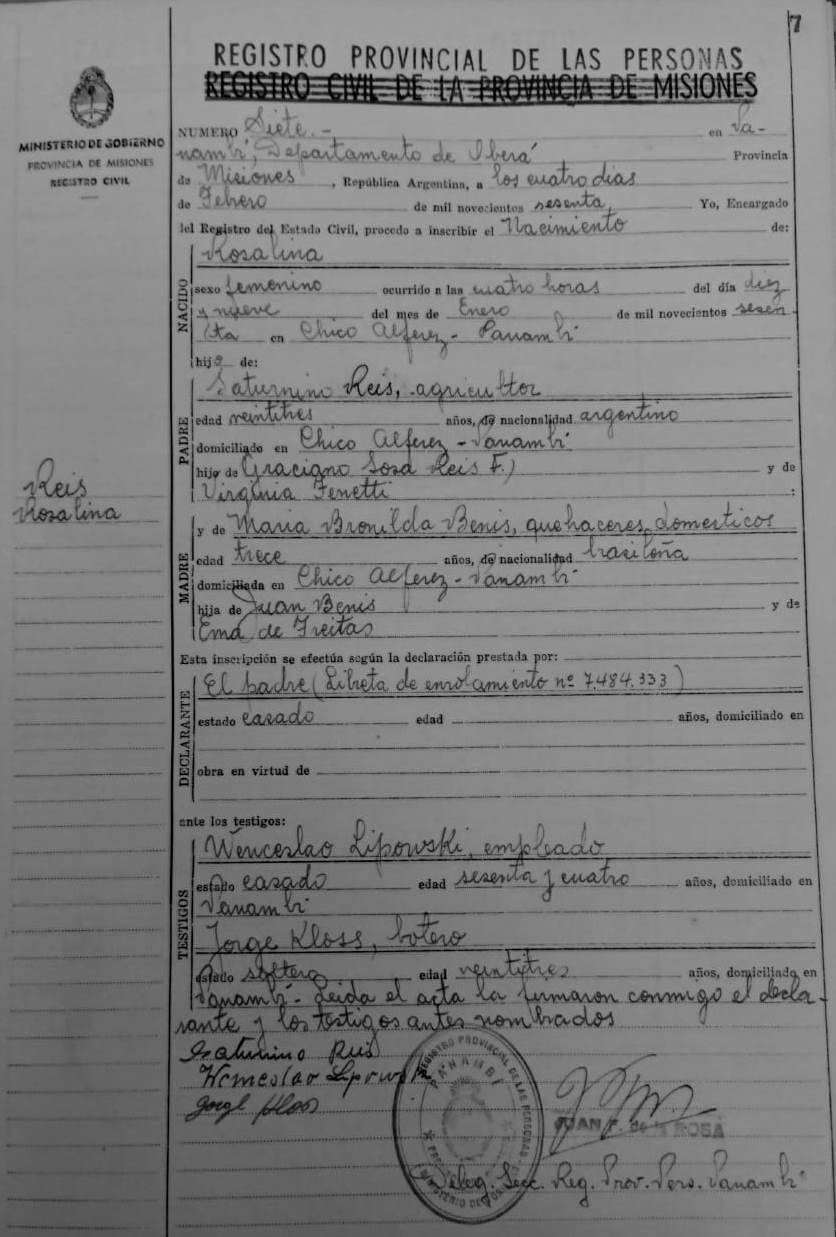 7
REGISTRO PROVINCIAL DE LAS PERSONAS
REGISTRO CIVIL DE LA PROVINCIA DE MISIONES
MINISTERIO DE GOBIERNO
PROVINCIA DE MISIONES
REGISTRO CIVIL
NUMERO Siete.- en Pa-
nambí, Departamento de Oberá Provincia
de Misiones, República Argentina, a los cuatro dias
de Febrero de mil novecientos sesenta, Yo, Encargado
del Registro del Estado Civil, procedo a inscribir el Nacimiento de:
NACIDO
Rosalina
sexo femenino ocurrido a las cuatro horas del día diez
y nueve del mes de Enero de mil novecientos sesen-
ta en Chico Alferez - Panambí
hija de:
PADRE
Saturnino Reis, agricultor
edad veintitres años, de nacionalidad argentino
domiciliado en Chico Alferez - Panambí
hijo de Graciano Sosa Reis F.) y de
Virginia Fenetti :
Reis
Rosalina
MADRE
y de Maria Bronilda Benis, quehaceres domesticos
edad trece años, de nacionalidad brasileña
domiciliada en Chico Alferez - Panambí
hija de Juan Benis y de
Ema de Freitas
Esta inscripción se efectúa según la declaración prestada por:
DECLARANTE
El padre (Libreta de enrolamiento nº 7.484.333)
estado casado edad años, domiciliado en
obra en virtud de
ante los testigos:
TESTIGOS
Wenceslao Lipowski, empleado
estado casado edad sesenta y cuatro años, domiciliado en
Panambí
Jorge Kloss, botero
estado soltero edad veintitres años, domiciliado en
Panambí - Leida el acta la firmaron conmigo el decla-
rante y los testigos antes nombrados
Saturnino Reis
Wenceslao Lipowski
Jorge Kloss
REGISTRO PROVINCIAL DE LAS PERSONAS
PANAMBI
MINISTERIO DE GOBIERNO
JUAN F. de la ROSA
Deleg. Secc. Reg. Prov. Pers. Panambí